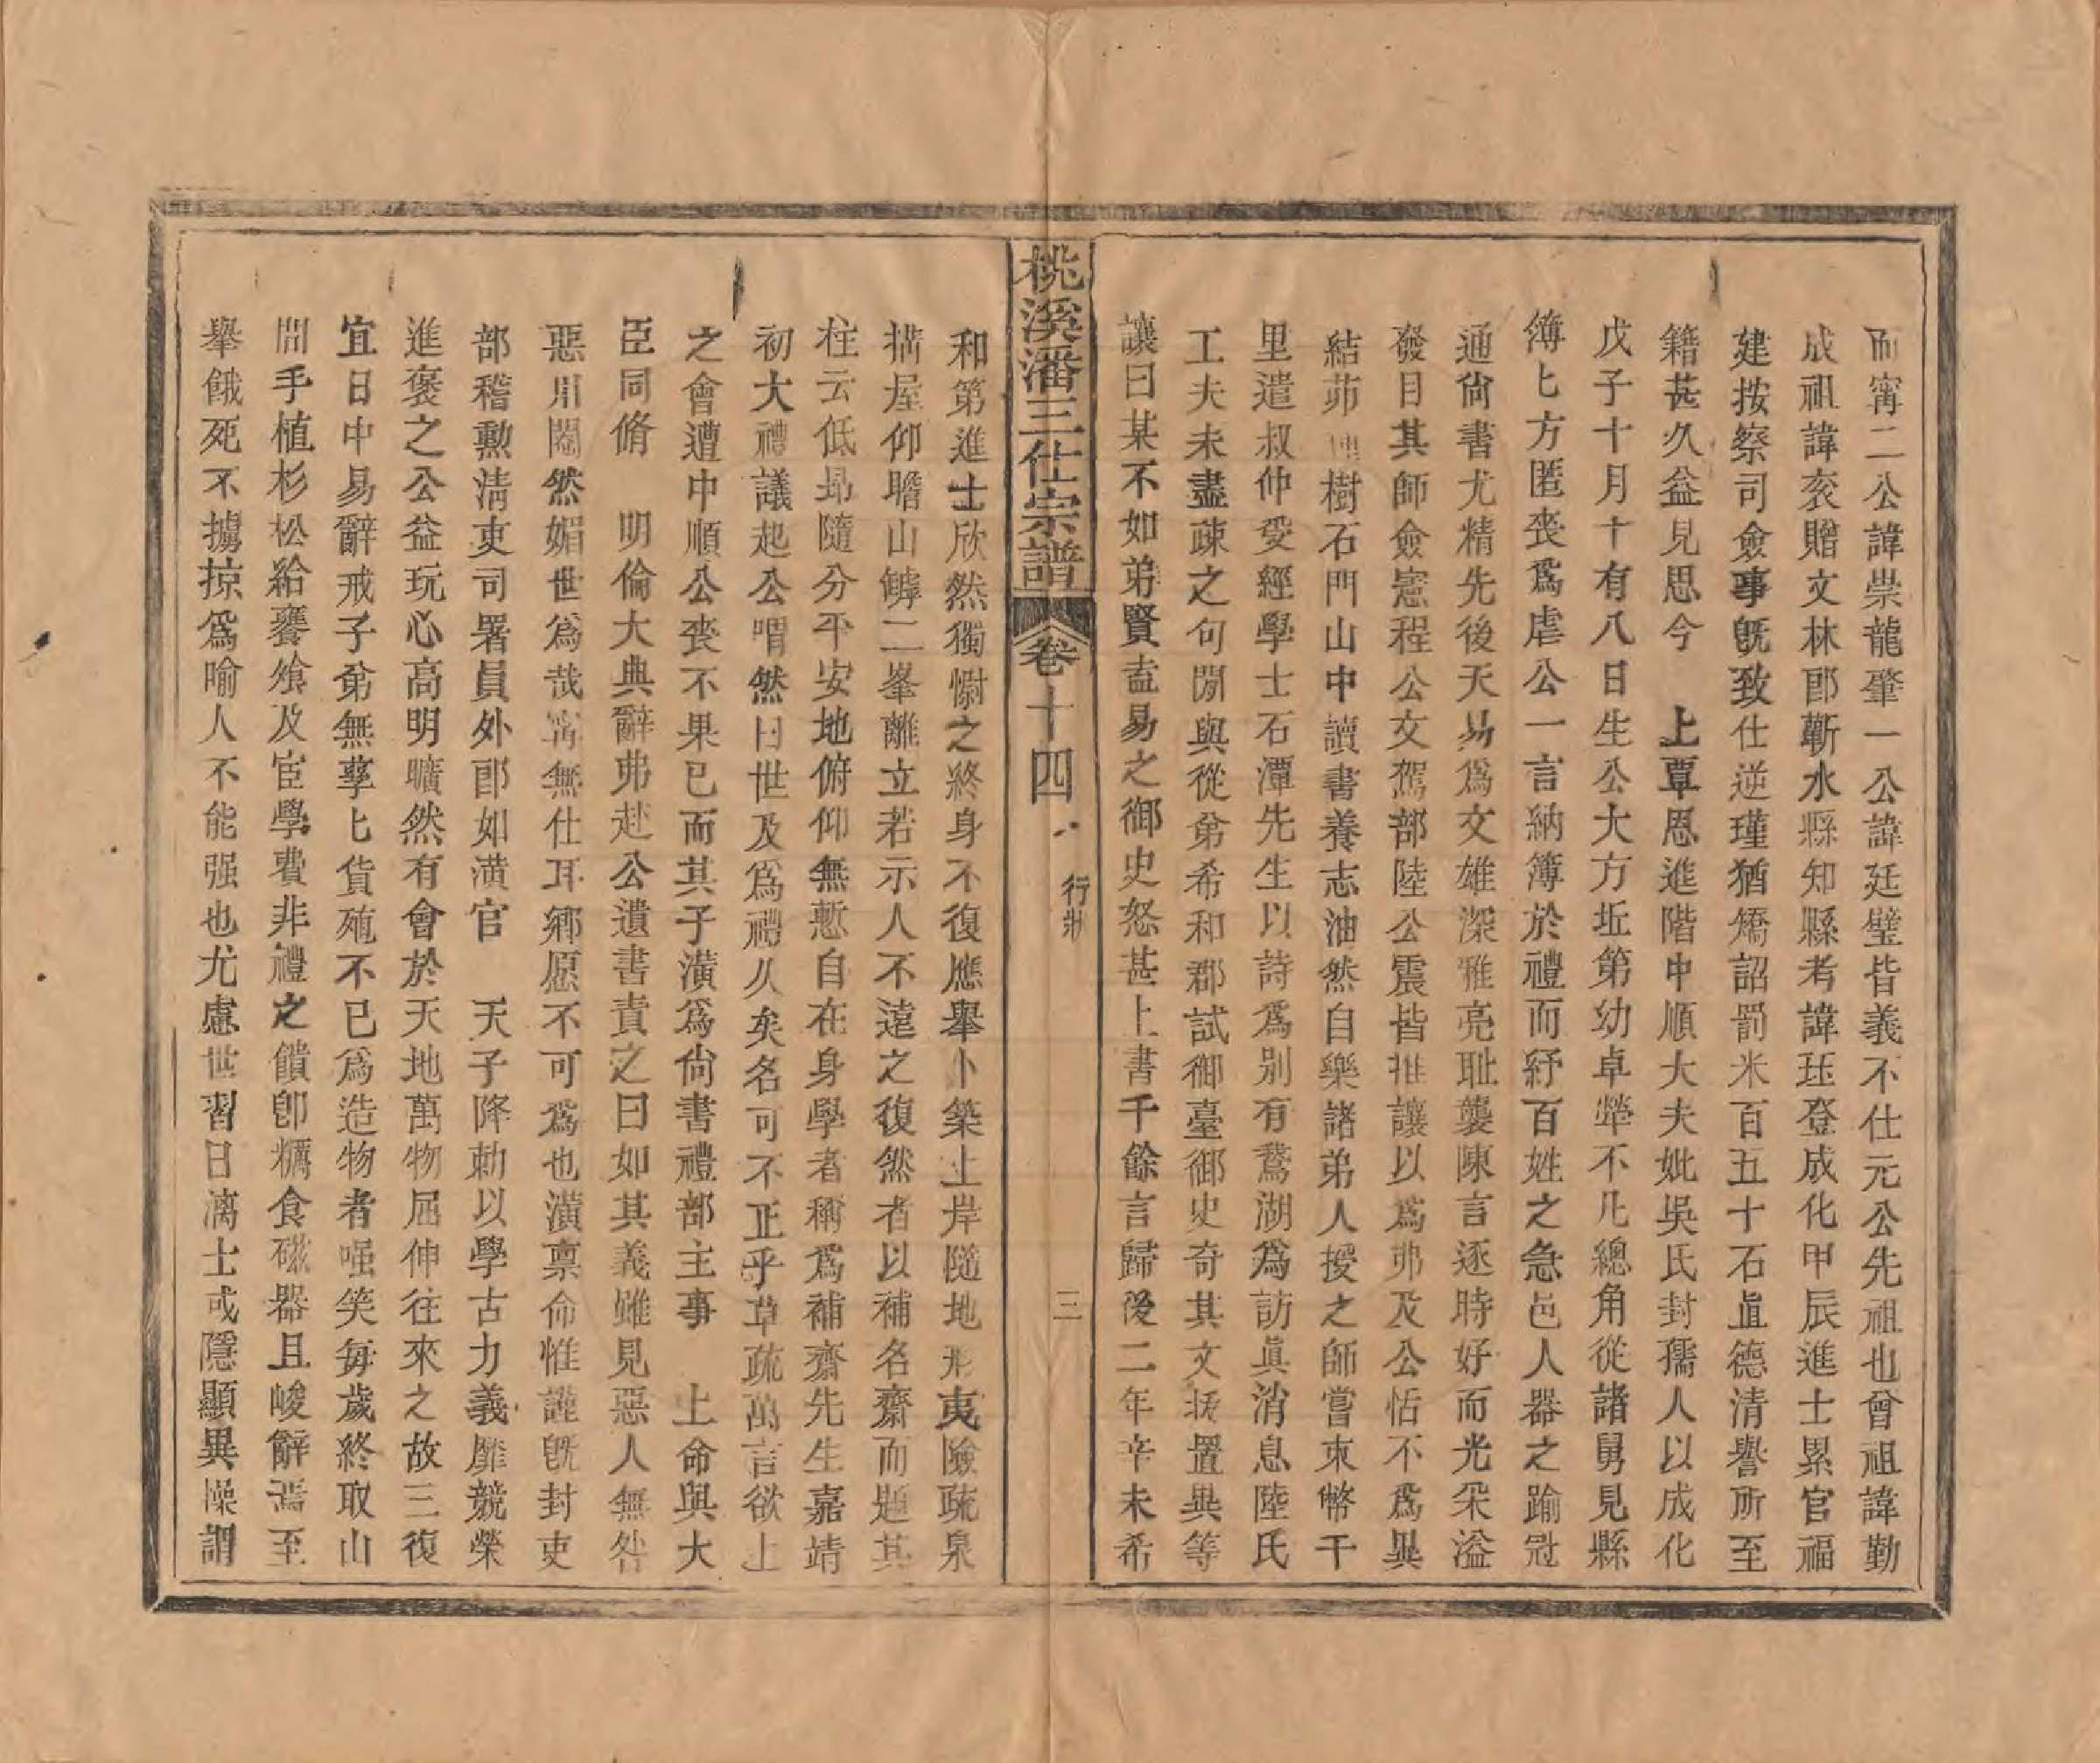 而甯二公諱崇龍肇一公諱廷璧皆義不仕元公先祖也曾祖諱勤
成祖諱衮贈文林郎蘄水縣知縣考諱珏登成化甲辰進士累官福
建按察司僉事既致仕逆瑾猶矯詔罰米百五十石直德清譽所至
籍甚久益見思今　上覃恩進階中順大夫妣吳氏封孺人以成化
戊子十月十有八日生公大方坵第幼卓犖不凡總角從諸舅見縣
簿匕方匿喪爲虐公一言納簿於禮而紓百姓之急邑人器之踰冠
通尙書尤精先後天易爲文雄深雅亮耻襲陳言逐時好而光采溢
發目其師僉憲程公文駕部陸公震皆推讓以爲弗及公恬不爲異
結茆樹石門山中讀書養志油然自樂諸弟人授之師嘗束幣千
里遣叔仲受經學士石潭先生以詩爲別有鵞湖爲訪眞消息陸氏
工夫未盡疎之句閒與從弟希和郡試御臺御史奇其文拔置異等
讓曰某不如弟賢盍易之御史怒甚上書千餘言歸後二年辛未希
桃溪潘三仕宗譜　卷十四　行狀　三
和第進士欣然獨慰之終身不復應舉卜築上岸隨地形夷險疏泉
搆屋仰瞻山罅二峯離立若示人不遠之復然者以補名齋而題其
柱云低昻隨分平安地俯仰無慙自在身學者稱爲補齋先生嘉靖
初大禮議起公喟然曰世及爲禮久矣名可不正乎草疏萬言欲上
之會遭中順公喪不果已而其子潢爲尙書禮部主事　上命與大
臣同脩　明倫大典辭弗赴公遺書責之曰如其義雖見惡人無咎
惡用閹然媚世爲哉甯無仕耳鄉愿不可爲也潢禀命惟謹旣封吏
部稽勲淸吏司署員外郎如潢官　天子降勅以學古力義靡競榮
進褒之公益玩心高明曠然有會於天地萬物屈伸往來之故三復
宜日中易辭戒子弟無孳匕貨殖不已爲造物者嗤笑每歲終取山
間手植杉松給饔飧及宦學費非禮之饋卽糲食磁器且峻辭焉至
舉餓死不擄掠爲喻人不能强也尤慮世習日漓士或隱顯異操謂